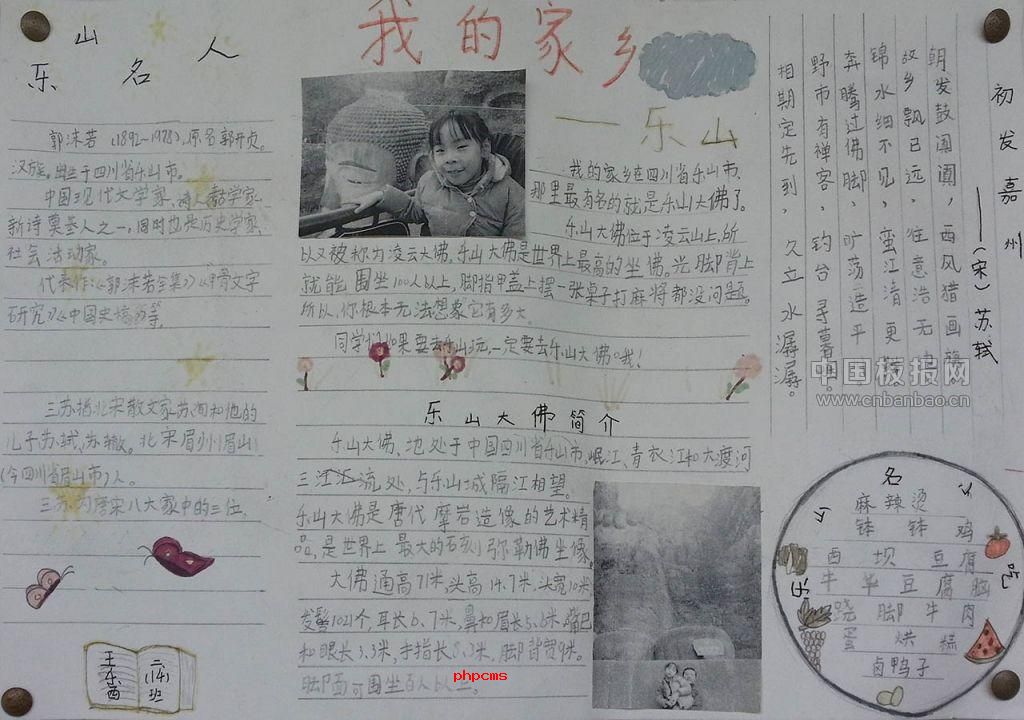 我的家乡
——乐山
乐山名人
郭沫若(1892~1978),原名郭开贞。
汉族。出生于四川省乐山市。
中国现代文学家、诗人、剧学家、
新诗奠基人之一,同时也是历史学家、
社会活动家。
代表作:《郭沫若全集》《甲骨文字
研究》《中国史稿》等。
三苏指北宋散文家苏洵和他的
儿子苏轼、苏辙。北宋眉州眉山
(今四川省眉山市)人。
三苏为唐宋八大家中的三位。
王东西
二(14)班
我的家乡在四川省乐山市、
那里最有名的就是乐山大佛了。
乐山大佛位于凌云山上,所
以又被称为凌云大佛。乐山大佛是世界上最高的坐佛。光脚背上
就能围坐100人以上,脚指甲盖上摆一张桌子打麻将都没问题。
所以,你根本无法想象它有多大。
同学们如果要去乐山玩,一定要去乐山大佛哦!
乐山大佛简介
乐山大佛、地处于中国四川省乐山市,岷江、青衣江和大渡河
三江汇流处,与乐山城隔江相望。
乐山大佛是唐代摩岩造像的艺术精
品,是世界上最大的石刻弥勒佛坐像。
大佛通高71米,头高14.7米,头宽10米,
发髻1021个,耳长6、7米,鼻和眉长5、6米,嘴巴
和眼长3.3米,手指长8.3米,脚背宽9米。
脚面可围坐百人以上。
phpcms
初发嘉州
——(宋)苏轼
朝发鼓阗阗,西风猎画旃
故乡飘已远,往意浩无
锦水细不见,蛮江清更
奔腾过佛脚,旷荡造平
野市有禅客,钓台寻暮
相期定先到,久立水潺潺。
中国板报网
www.cnbanbao.cn
乐山名小吃
麻辣烫
钵钵鸡
西坝豆腐
牛羊豆腐脑
跷脚牛肉
蛋烘糕
卤鸭子